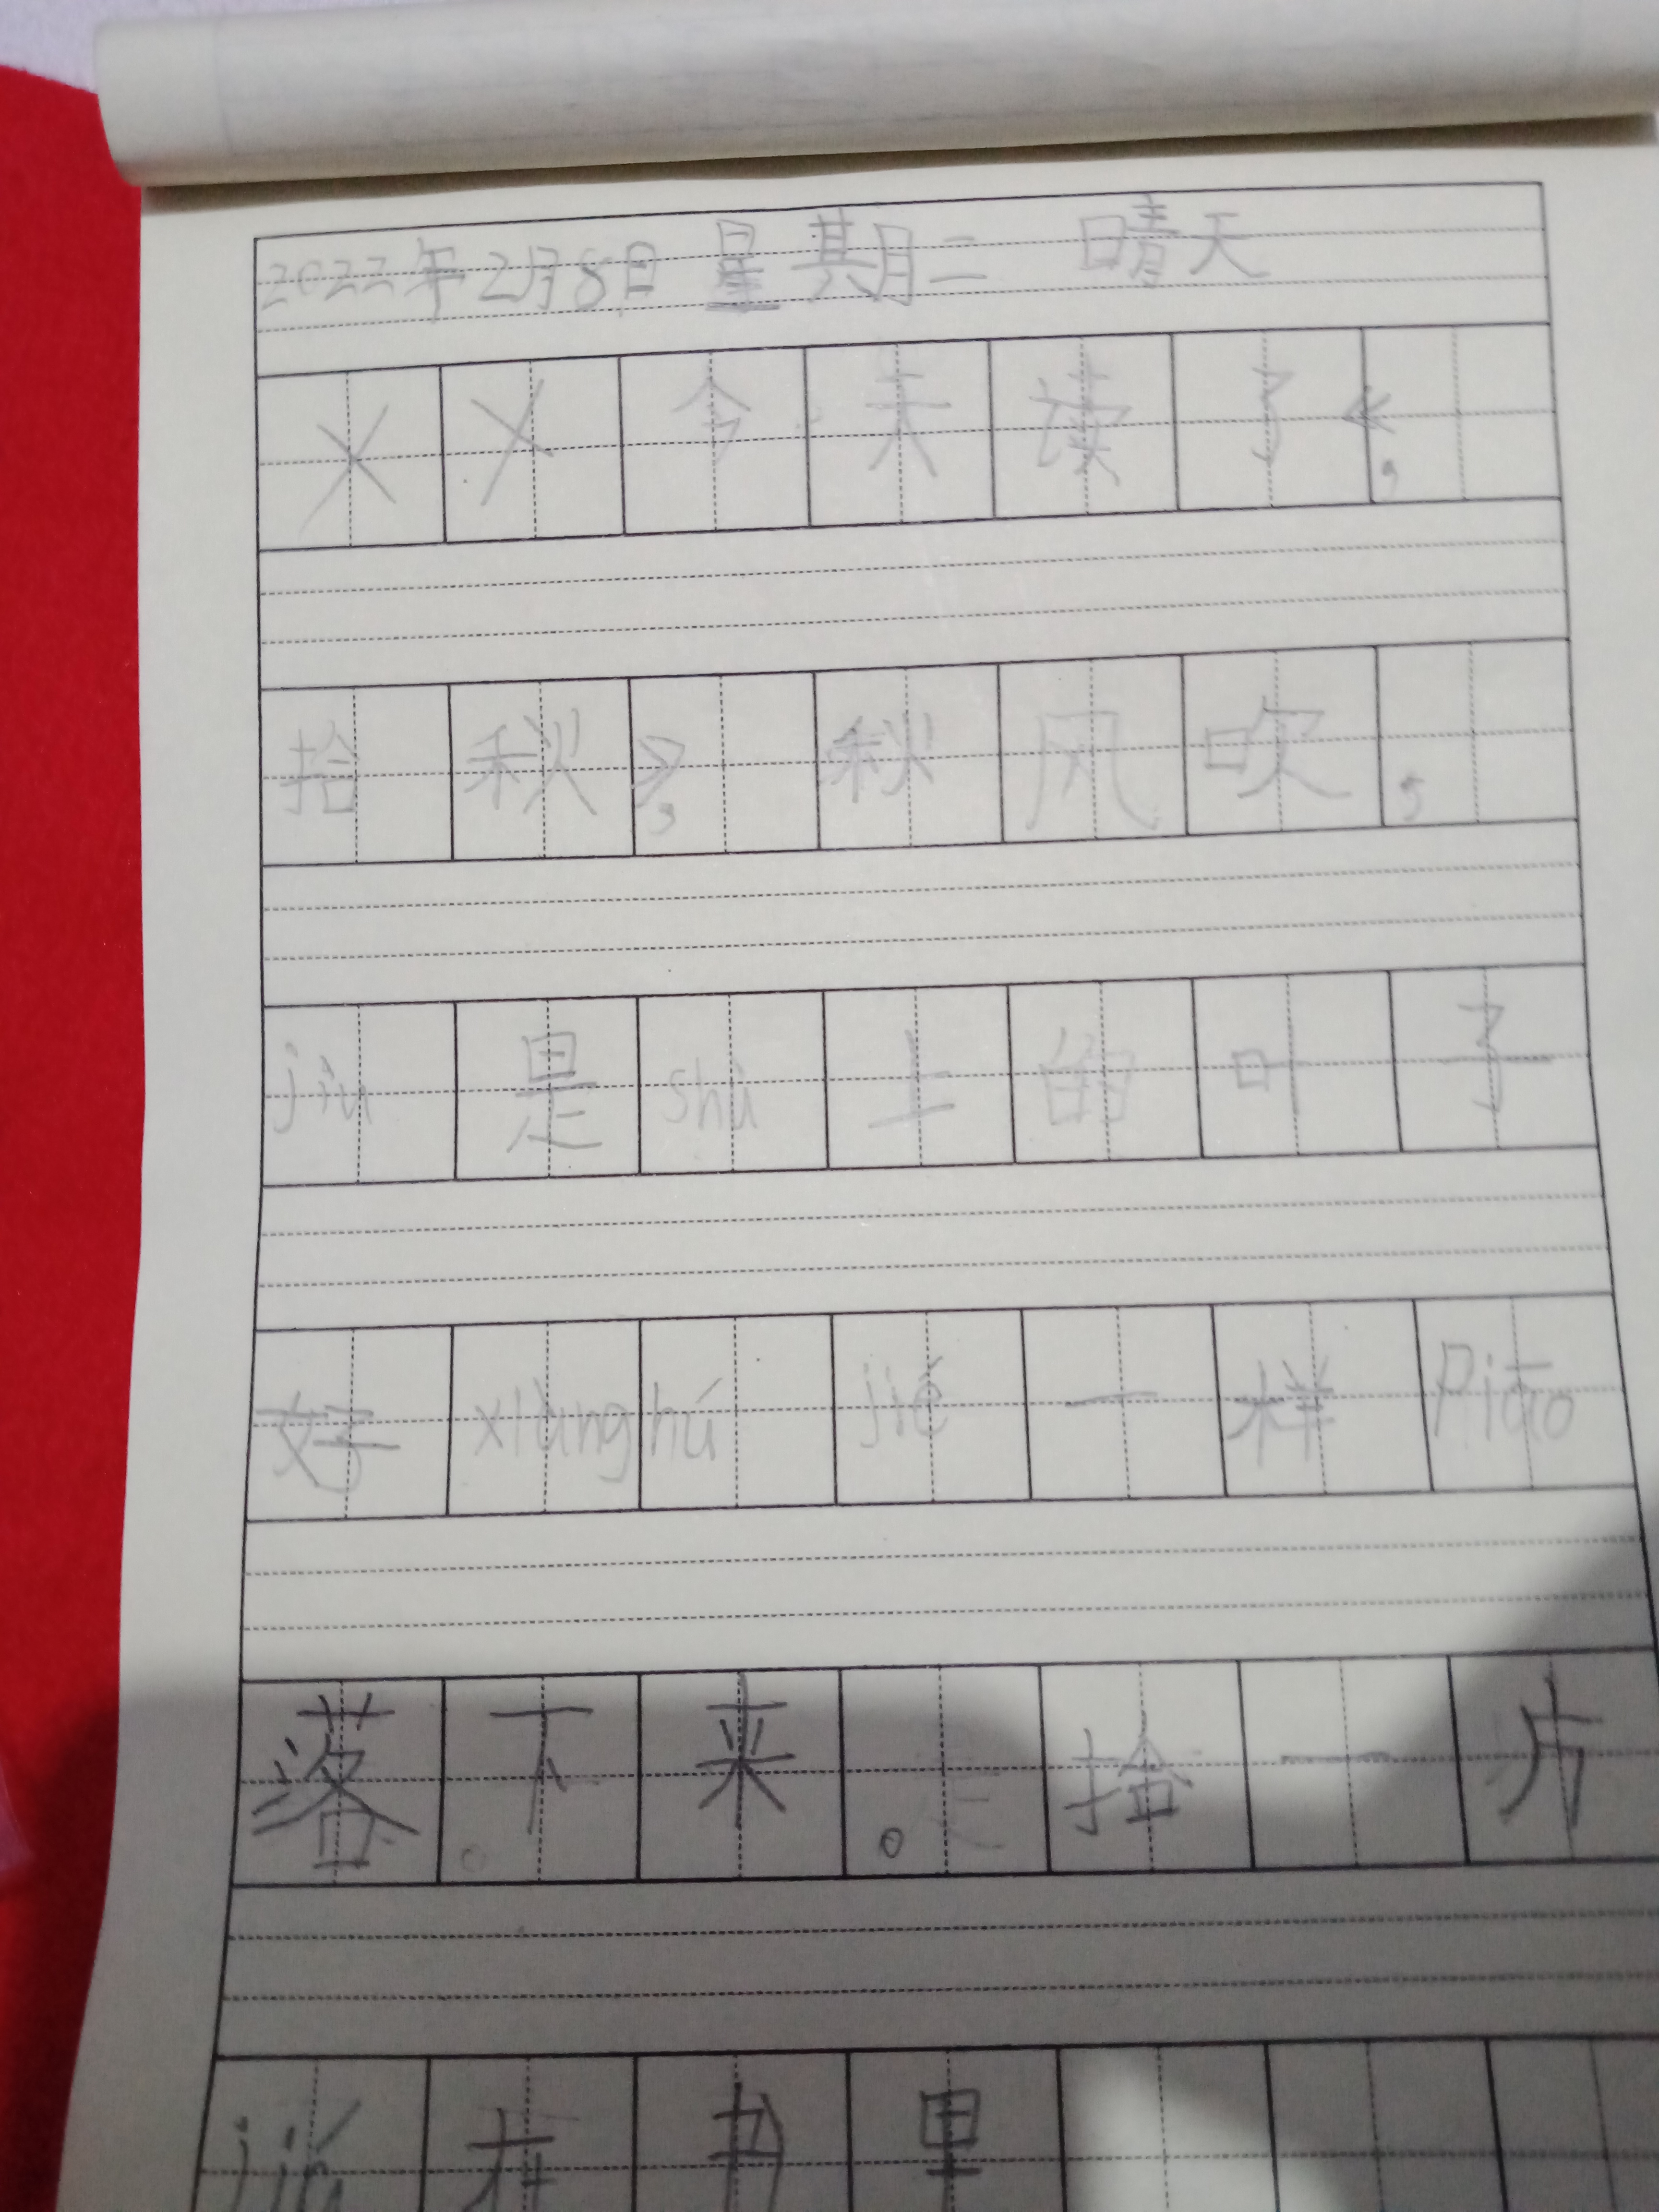 2022年2月8日 星期二 晴天
今天读了《,
拾秋》,秋风吹,
jiù是shù上的叶子
好xiànghú jié一样Piāo
落下来。拾一片
jiá在书里